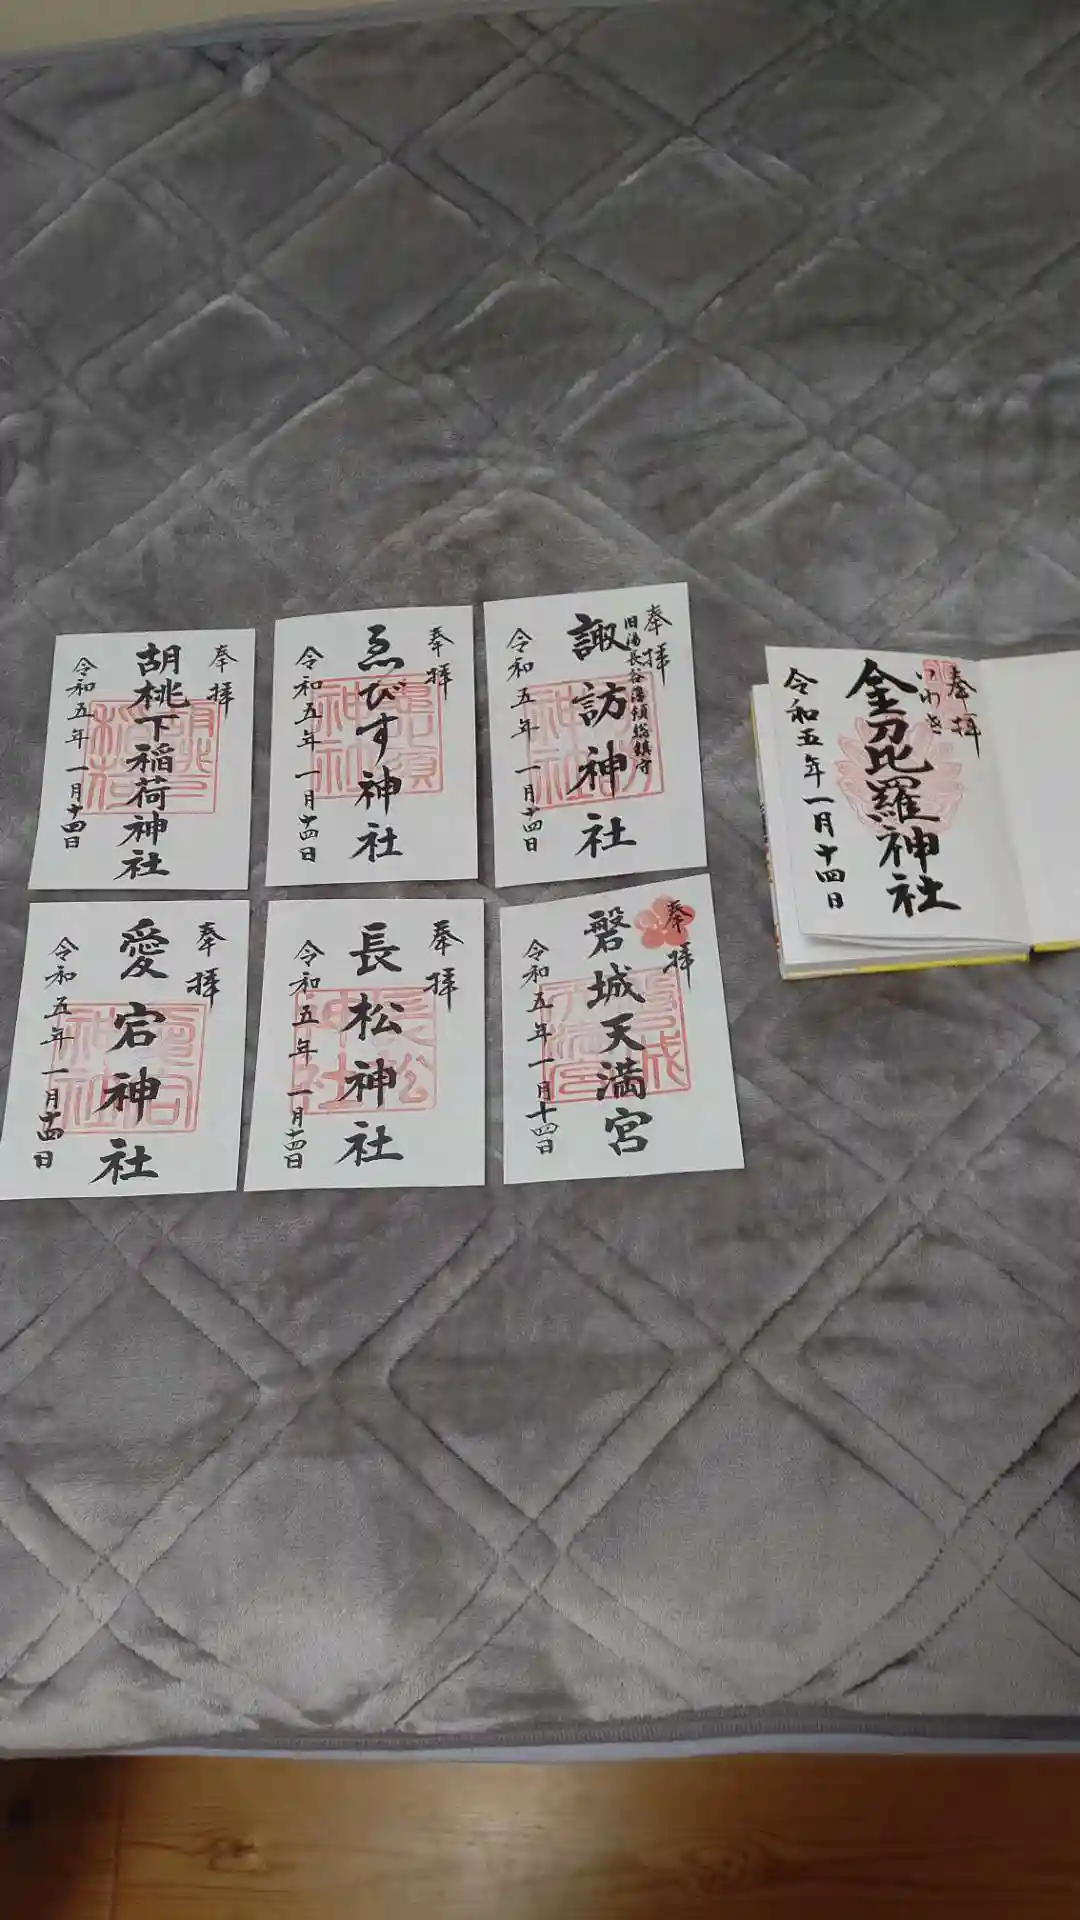 奉拝
胡桃下稲荷神社
令和五年一月十四日
奉拝
ゑびす神社
令和五年一月十四日
奉拝
旧湯長谷藩領総鎮守
諏訪神社
令和五年一月十四日
奉拝
いわき
金刀比羅神社
令和五年一月十四日
奉拝
愛宕神社
令和五年一月十四日
奉拝
長松神社
令和五年一月十四日
奉拝
磐城天満宮
令和五年一月十四日